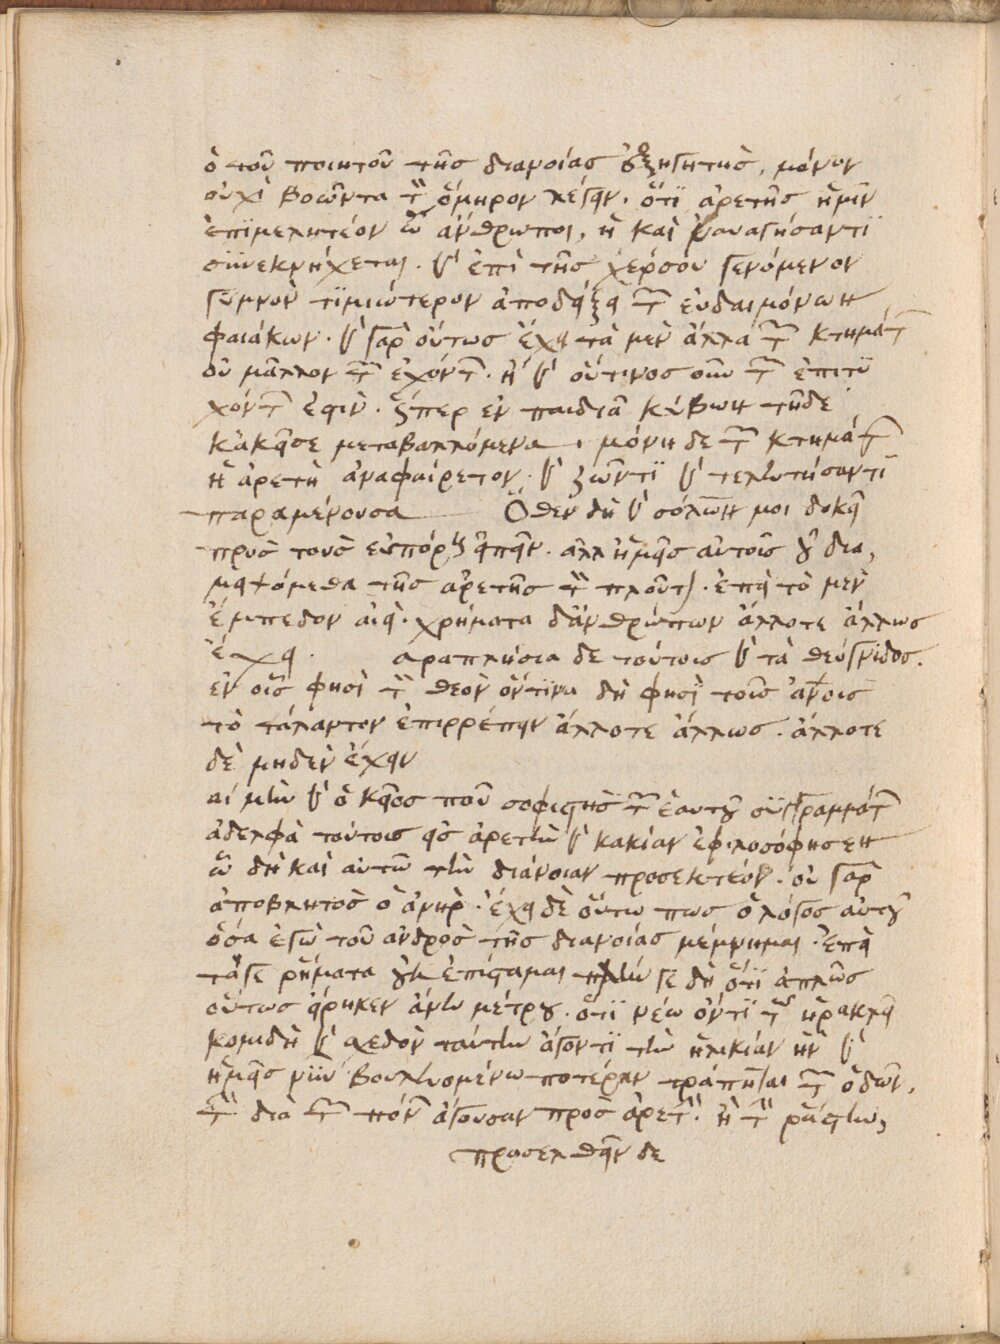 ὁ τοῦ ποιητοῦ τῆς διανοίας ἐξηγητὴς, μόνον
οὐχὶ βοῶντα τὸν ὅμηρον λέγειν. ὅτι ἀρετῆς ἡμῖν
ἐπιμελητέον ὦ ἄνθρωποι, ἣ καὶ ναυαγήσαντι
συνεκνήχεται. καὶ ἐπὶ τῆς χέρσου γενόμενον
γυμνὸν τιμιώτερον ἀποδείξει τῶν εὐδαιμόνων
φαιάκων. καὶ γὰρ οὕτως ἔχει τὰ μὲν ἄλλα τῶν κτημάτων
οὐ μᾶλλον τῶν ἐχόντων. ἢ καὶ οὑτινοσοῦν τῶν ἐπιτυ
χόντων ἐστὶν. ὥσπερ ἐν παιδιᾶ κύβων τῆδε
κἀκεῖσε μεταβαλλόμενα. μόνη δε τῶν κτημάτων
ἡ ἀρετὴ ἀναφαίρετον. καὶ ζῶντι καὶ τελευτήσαντι
παραμένουσα Ὅθεν δὴ καὶ σόλων μοι δοκεῖ
πρὸς τοὺς εὐπόρους εἰπεῖν. ἀλλ ἡμεῖς αὐτοῖς οὐ δια,
μειψόμεθα τῆς ἀρετῆς τὸν πλοῦτον. ἐπεὶ τὸ μὲν
ἔμπεδον αἰεὶ. χρήματα δ ἀνθρώπων ἄλλοτε ἄλλως
ἔχει. αραπλήσια δε τούτοις καὶ τὰ θεόγνιδος.
ἐν οἷς φησὶ τὸν θεὸν ὅντινα δή φησι τοῖς ἀνοις
τὸ τάλαντον ἐπιρρέπειν ἄλλοτε ἄλλως. ἄλλοτε
δὲ μηδὲν ἔχειν
αί μὴν καὶ ὁ κεῖος που σοφιστὴς τῶν ἑαυτοῦ συγγραμμάτων
ἀδελφὰ τούτοις εἰς ἀρετὴν καὶ κακίαν ἐφιλοσόφησεν
ὧ δὴ καὶ αὐτῶ τὴν διάνοιαν προσεκτέον. οὐ γὰρ
ἀπόβλητος ὁ ἀνὴρ. ἔχει δὲ οὕτω πως ὁ λόγος αὐτοῦ
ὅσα ἐγὼ τοῦ ἀνδρὸς τῆς διανοίας μέμνημαι. ἐπεὶ
τά γε ῥήματα οὐκ ἐπίσταμαι πλήν γε δὴ ὅτι ἁπλῶς
οὕτως εἴρηκεν ἄνευ μέτρου. ὅτι νέω ὄντι τῷ ἡρακλεῖ
κομιδῆ καὶ σχεδὸν ταύτην ἄγοντι τὴν ἡλικίαν ἣν καὶ
ἡμεῖς νῦν βουλευομένω ποτέραν τράπηται τῶν ὁδῶν,
τὴν διὰ τῶν πόνων ἄγουσαν πρὸς ἀρετὴν. ἢ τὴν ῥάστην,
προσελθεῖν δε